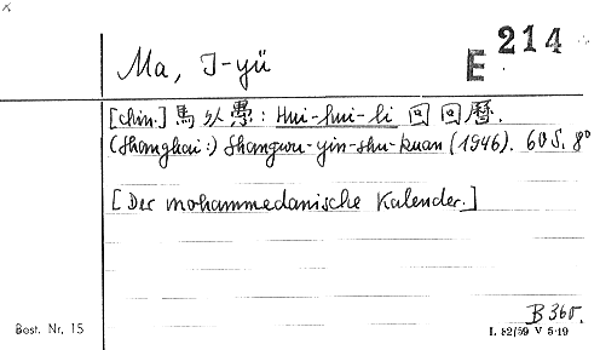 E 214
Ma, I-yü
[Chin.] 馬以愚: Hui-hui-li 回回曆.
(Shanghai:) Shangwu-yin-shu-kuan (1946). 60 S. 8°
[Der mohammedanische Kalender.]
B
Best. Nr. 15
I. 82/59 V 5-19